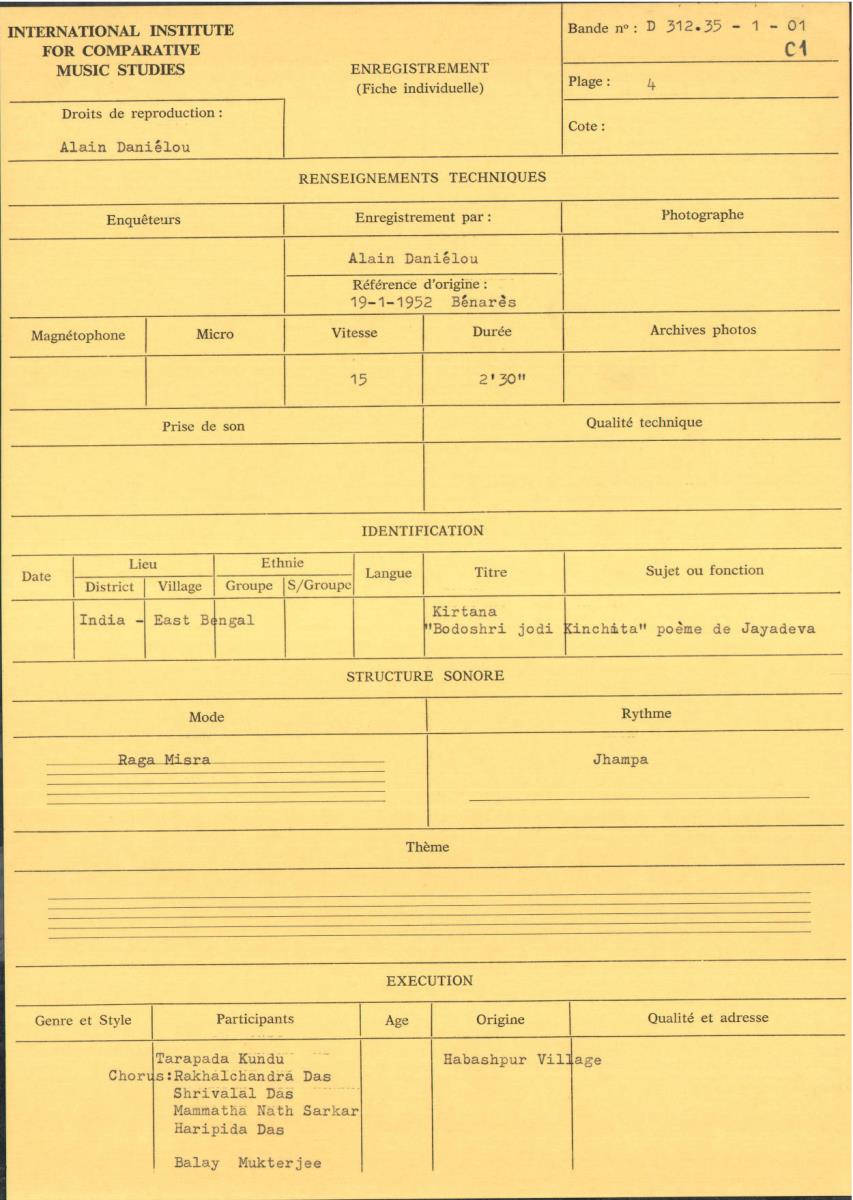 INTERNATIONAL INSTITUTE
FOR COMPARATIVE
MUSIC STUDIES
Droits de reproduction :
Alain Daniélou
ENREGISTREMENT
(Fiche individuelle)
Bande nº : D 312.35 - 1 - 01
C1
Plage : 4
Cote :
RENSEIGNEMENTS TECHNIQUES
Enquêteurs
Enregistrement par :
Photographe
Alain Daniélou
Référence d'origine :
19-1-1952 Bénarès
Magnétophone
Micro
Vitesse
Durée
Archives photos
15
2'30"
Prise de son
Qualité technique
IDENTIFICATION
Date
Lieu
District
Village
Ethnie
Groupe
S/Groupe
Langue
Titre
Sujet ou fonction
India - East Bengal
Kirtana
"Bodoshri jodi Kinchita" poème de Jayadeva
STRUCTURE SONORE
Mode
Rythme
Raga Misra
Jhampa
Thème
EXECUTION
Genre et Style
Participants
Age
Origine
Qualité et adresse
Tarapada Kundu
Chorus:Rakhalchandra Das
Shrivalal Das
Mammatha Nath Sarkar
Haripida Das
Balay Mukterjee
Habashpur Village